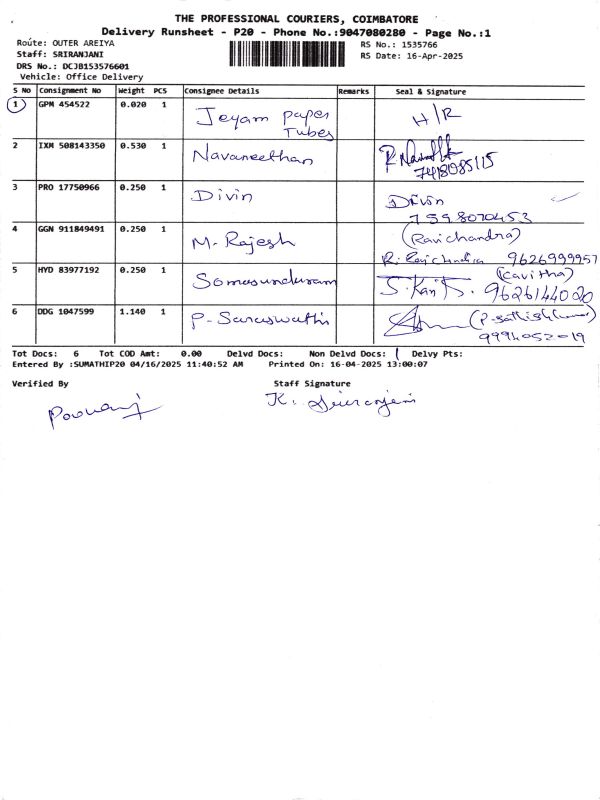 THE PROFESSIONAL COURIERS, COIMBATORE
Delivery Runsheet - P20 - Phone No.:9047080280 - Page No.:1
Route: OUTER AREIYA
RS No.: 1535766
Staff: SRIRANJANI
RS Date: 16-Apr-2025
DRS No.: DCJB153576601
Vehicle: Office Delivery
S No Consignment No Weight PCS Consignee Details Remarks Seal & Signature
1 GPM 454522 0.020 1 Jeyam paper Tubes H/R
2 IXM 508143350 0.530 1 Navaneethan
3 PRO 17750966 0.250 1 Divin Divin
7598070453
4 GGN 911849491 0.250 1 M. Rajesh (Ravichandra)
R. Ravichandra 9626999957
5 HYD 83977192 0.250 1 Somasundaram (Kavitha)
9626144020
6 DDG 1047599 1.140 1 P. Saraswathi
9994052019
Tot Docs: 6 Tot COD Amt: 0.00 Delvd Docs: Non Delvd Docs: 1 Delvy Pts:
Entered By :SUMATHIP20 04/16/2025 11:40:52 AM Printed On: 16-04-2025 13:00:07
Verified By Staff Signature